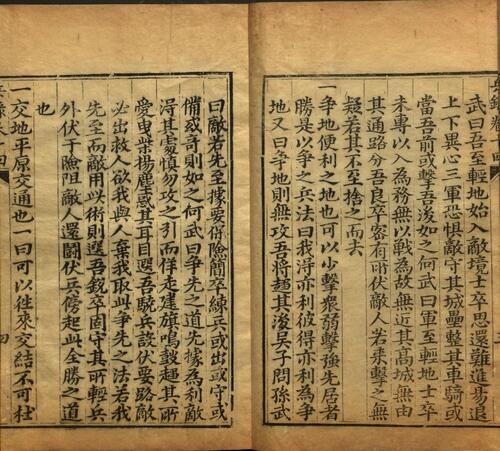 武曰吾士卒始入敵境士卒思還難進易退
上下異心三軍恐懼敵守其城壘整其車騎或
當吾前或擊吾後如之何武曰軍至輕地士卒
未專以入為務無以戰為故無近其髙城無由
其通路分吾良卒密有所伏敵人若來擊之無
疑若其不至捨之而去
一爭地便利之地也可以少擊衆弱擊強先居者
勝是以爭之兵法曰我淂亦利彼得亦利為爭
地又曰爭地則無攻吾將趨其後吳子問孫武
曰敵若先至據要保險簡卒練兵或出或守或
備或竒則如之何武曰爭先之道先據為利敵
淂其處慎勿攻之引而佯走建旗鳴鼓趨其所
愛曳柴揚塵惑其耳目選吾驍兵設伏要路敵
必出救人欲我與人棄我取此爭先之法若我
先至而敵用此術則選吾銳卒固守其所輕兵
外伏于險阻敵人還鬪伏兵傍起此全勝之道
也
一交地平原交通也一曰可以徃來交結不可杜